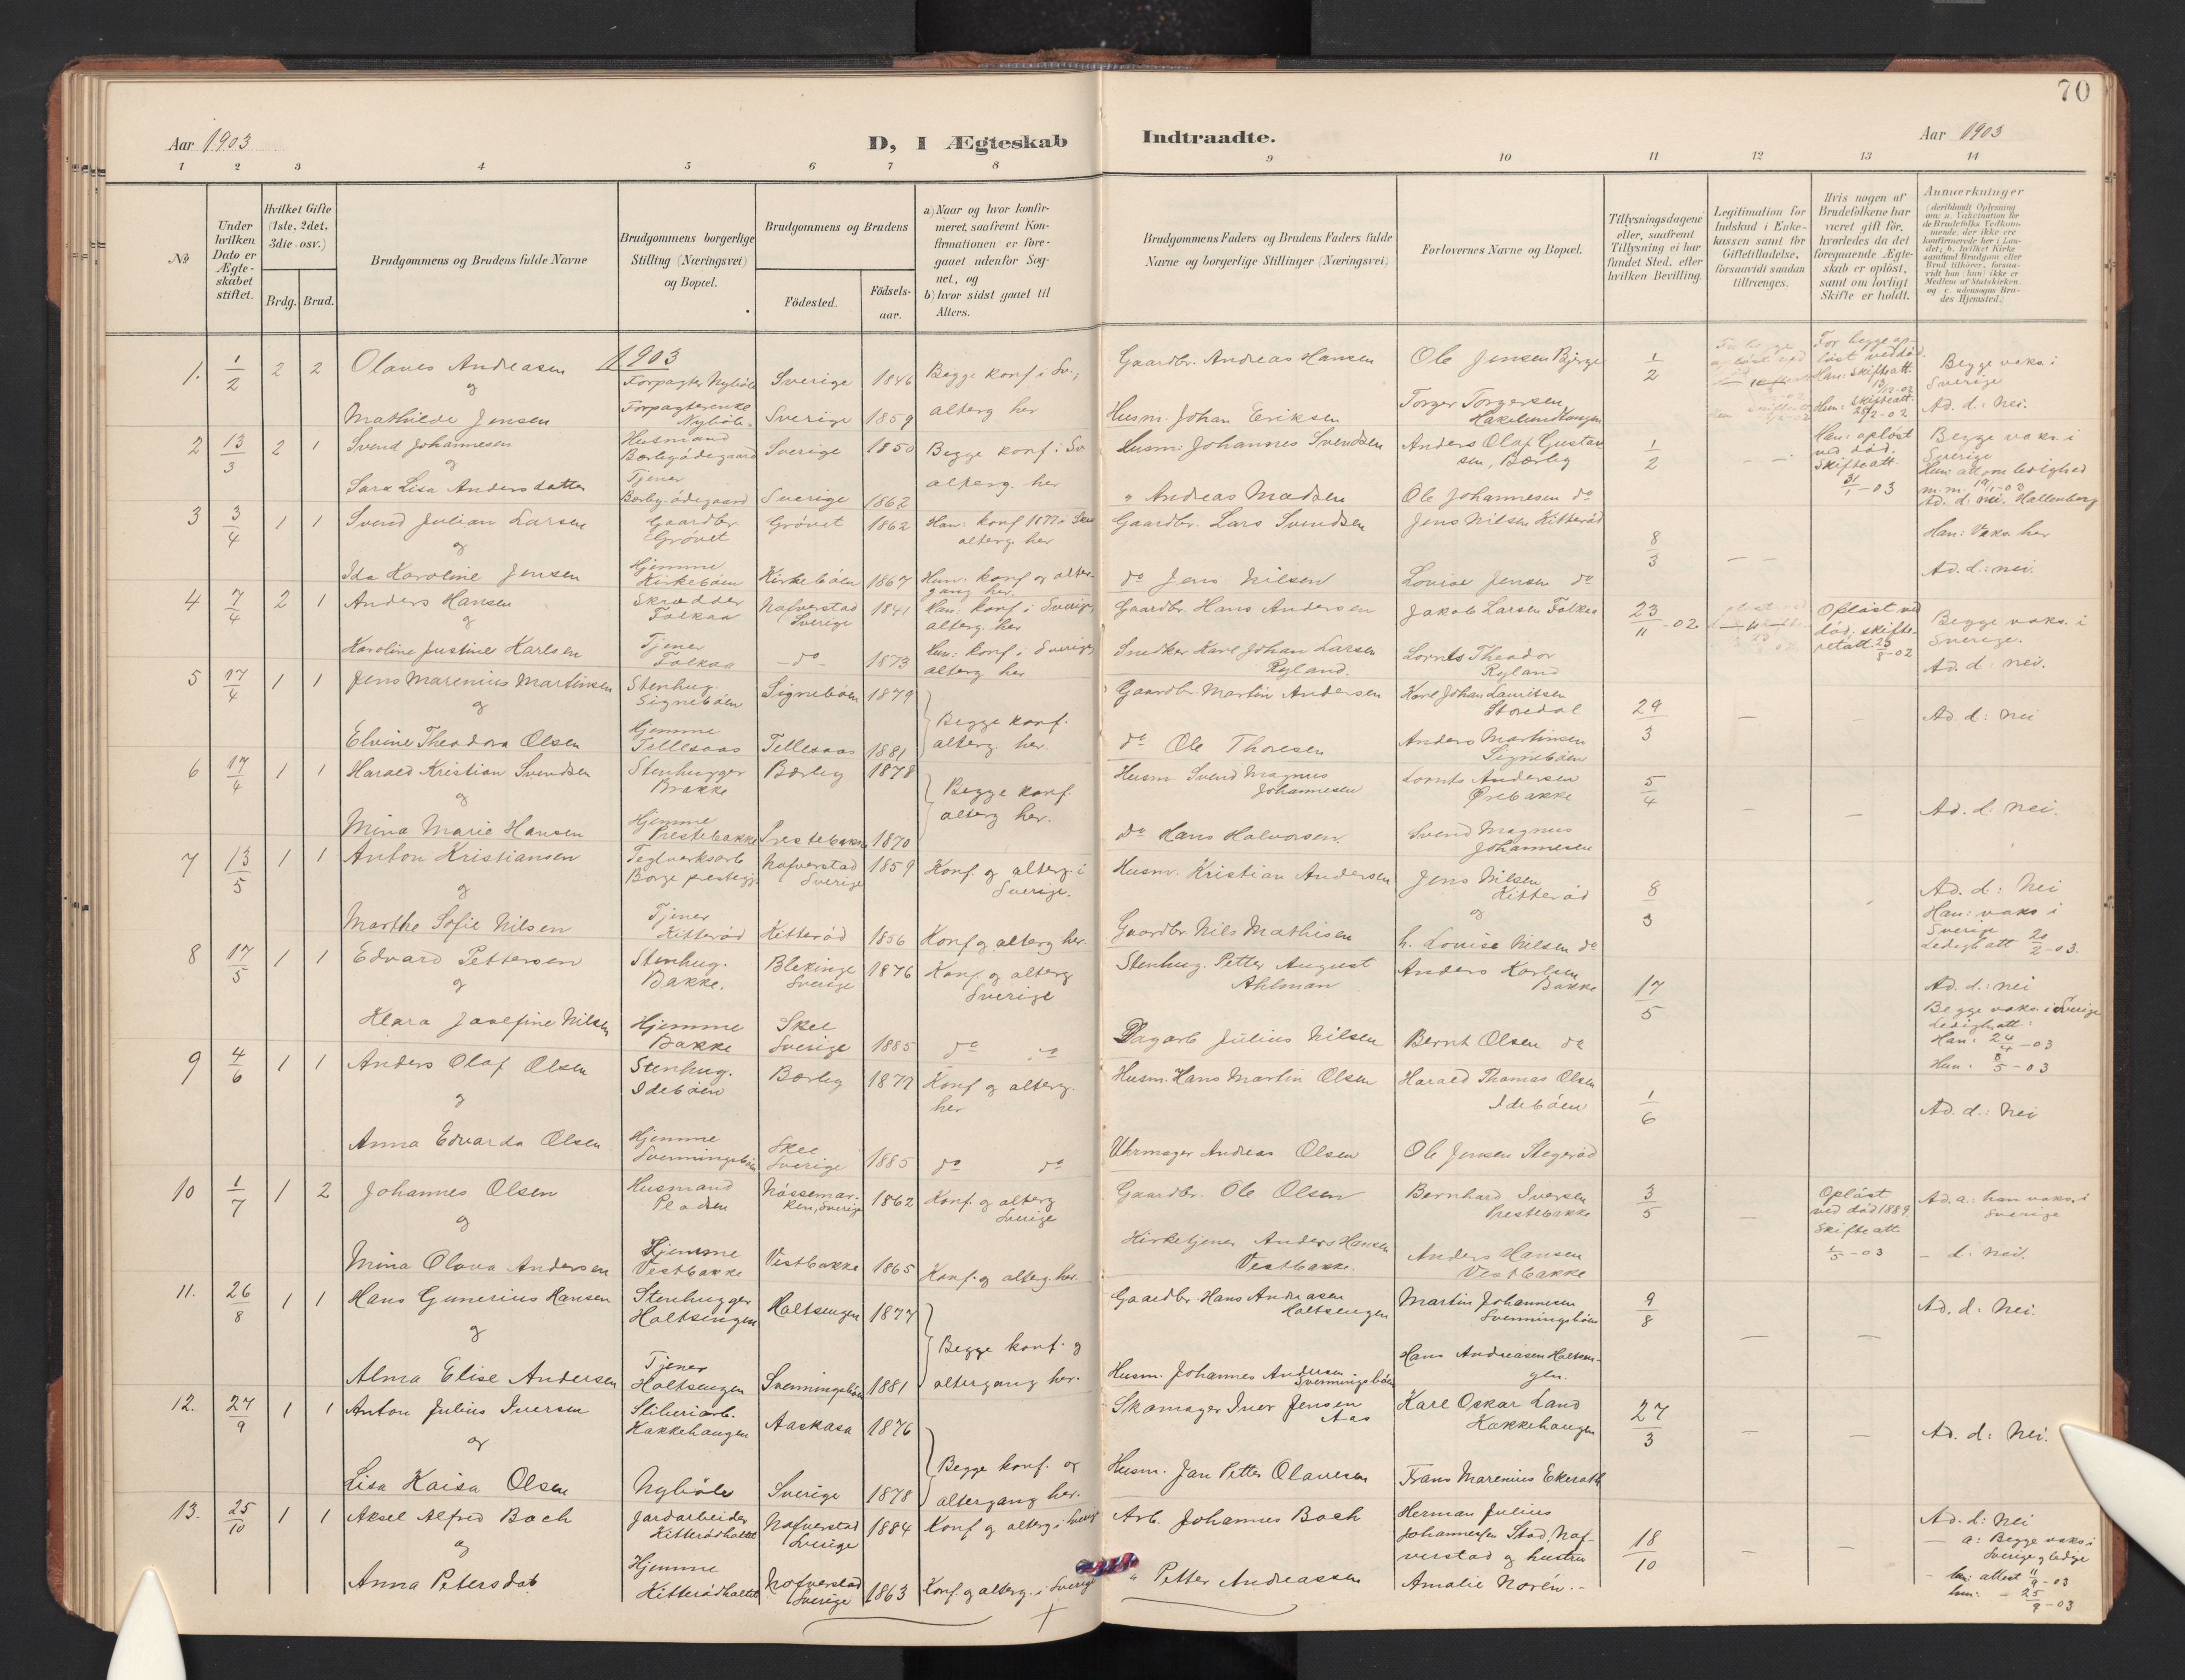 70
Aar 1903
D, I Ægteskab Indtraadte.
Aar 1903
1 2 3 4 5 6 7 8 9 10 11 12 13 14
№
Under hvilken Dato er Ægteskabet stiftet.
Hvilket Gifte (1ste, 2det, 3die osv.)
Brdg. Brud.
Brudgommens og Brudens fulde Navne
Brudgommens borgerlige Stilling (Næringsvei) og Bopæl.
Brudgommens og Brudens
Födested. Födselsaar.
a) Naar og hvor konfirmeret, saafremt Konfirmationen er foregaaet udenfor Sognet, og
b) hvor sidst gaaet til Alters.
Brudgommens Faders og Brudens Faders fulde Navne og borgerlige Stillinger (Næringsvei)
Forlovernes Navne og Bopæl.
Tillysningsdagene eller, saafremt Tillysning ei har fundet Sted, efter hvilken Bevilling.
Legitimation for Indskud i Enkekassen samt for Giftetilladelse, forsaavidt saadan tiltrænges.
Hvis nogen af Brudefolkene har været gift för, hvorledes da det foregaaende Ægteskab er oplöst, samt om lovligt Skifte er holdt.
Anmærkninger (deriblandt Oplysning om: a. Vakcination for de Brudefolks Vedkommende, der ikke ere konfirmerede her i Landet; b. hvilket Kirkesamfund Brudgom eller Brud tilhörer, forsaavidt han (hun) ikke er Medlem af Statskirken, og c. udensogns Brudes Hjemsted.)
1903
1. 1/2 2 2 Olaves Andreasen Forpagter Nyböle Sverige 1846 Begge konf. i Sv., Gaardbr. Andreas Hansen Ole Jensen Bjerge 1/2 For begge oplöst ved död. Begge vaks. i
og alterg her Han: Skifteatt. 13/12-02 Sverige
Mathilde Jensen Forpagterenke Nyböle. Sverige 1859 Husm. Johan Eriksen Torger Torgersen, Hun: Skifteatt. Ad. d.: Nei.
2 13/3 2 1 Svend Johannesen Husmand Bærbyödegaard Sverige 1850 Begge konf. i Sv Husm. Johannes Svendsen Anders Olaf Gustavsen, Bærby 1/2 Han: oplöst ved död. Begge vaks. i
og alterg. her Skifteatt. 31/1-03 Sverige
Sara Lisa Andersdatter Tjener Bærby-ödegaard Sverige 1862 " Andreas Madsen Ole Johannesen do Hun: att. om ledighed m.m. 19/1-03
Ad. d. nei. Hallenberg
3 3/4 1 1 Svend Julian Larsen Gaardbr. Grövet Grövet 1862 Han: konf 1877 i Skee Gaardbr. Lars Svendsen Jens Nilsen Kitteröd 8/3 — — Han: Vaks. her
og alterg. her
Ida Karoline Jensen Hjemme Kirkeböen Kirkeböen 1867 Hun: konf og altergang her. do Jens Nilsen Lovise Jensen do Ad. d.: nei.
4 7/4 2 1 Anders Hansen Skrædder Folkaa Nafverstad Sverige 1841 Han: konf i Sverige Gaardbr. Hans Andersen Jakob Larsen Folkaa 23/11-02 Oplöst ved Begge vaks. i
og alterg her död, skifteretatt. 25/8-02 Sverige.
Karoline Justine Karlsen Tjener Folkaa — do — 1873 Hun: konf i Sverige alterg her Snedker Karl Johan Larsen Ryland. Lornts Theodor Ryland Ad. d: nei.
5 17/4 1 1 Jens Marenius Martinsen Stenhug. Signeböen Signeböen 1879 Gaardbr. Martin Andersen Karl Johan Lauritsen Storedal 29/3 — — Ad. d: Nei
og Begge konf. alterg. her.
Elvine Theodora Olsen Hjemme Tellesaas Tellesaas 1881 do Ole Thoresen Anders Martinsen Signeböen
6 17/4 1 1 Harald Kristian Svendsen Stenhugger Brække Bærby 1878 Husm. Svend Magnus Johannesen Lornts Andersen Örebække 5/4 — — Ad. d. nei.
og Begge konf. alterg her.
Mina Marie Hansen Hjemme Prestebakke Prestebakke 1870 do Hans Halvorsen. Svend Magnus Johannesen
7 13/5 1 1 Anton Kristiansen Teglverksarb. Borge prestegj. Nafverstad Sverige 1859 Konf. og alterg. i Sverige. Husm. Kristian Andersen Jens Nilsen Kitteröd 8/3 Ad. d.: Nei
og og Han: vaks i Sverige
Marthe Sofie Nilsen Tjener Kitteröd Kitteröd 1856 Konf og alterg her. Gaardbr. Nils Mathisen h. Lovise Nilsen do Ledigh att 20/2-03.
8 17/5 1 1 Edvard Pettersen Stenhug. Bakke. Blekinge Sverige 1876 Konf. og alterg Sverige Stenhug. Petter August Ahlman Anders Karlsen Bakke 17/5 Ad. d.: nei
og Begge vaks. i Sverige
Klara Josefine Nilsen Hjemme Bakke Skee Sverige 1885 do do Dagarb Julius Nilsen Bernt Olsen do Ledigh. att: Han: 24/4-03
Hun: 8/5-03
9 4/6 1 1 Anders Olaf Olsen Stenhug. Ideböen Bærby 1877 Konf og alterg. her Husm. Hans Martin Olsen Harald Thomas Olsen Ideböen 1/6 Ad. d.: Nei
og
Anna Edvarda Olsen Hjemme Svenningsböen Skee Sverige 1885 do do Uhrmager Andreas Olsen Ole Jensen Stegeröd
10 1/7 1 2 Johannes Olsen Husmand Pladsen Nössemarken, Sverige 1862 Konf. og alterg Sverige Gaardbr. Ole Olsen Bernhard Iversen Prestebakke 3/5 — Oplöst ved död 1889 Ad. a: han vaks. i Sverige
og Skifteatt. 1/5-03
Mina Olava Andersen Hjemme Vestbakke Vestbakke 1865 Konf. og alterg. her. Kirketjener Anders Hansen Vestbakke. Anders Hansen Vestbakke — d. nei.
11. 26/8 1 1 Hans Gunerius Hansen Stenhugger Holtsengen Holtsengen 1877 Gaardbr. Hans Andreasen Holtsengen Martin Johannesen Svenningsböen 9/8 — — Ad. d: Nei.
og Begge konf. og altergang her.
Alma Elise Andersen Tjener Holtsengen Svenningsböen 1881 Husm. Johannes Andersen Svenningsböen Hans Andreasen Holtsengen.
12. 27/9 1 1 Anton Julius Iversen Sliberiarb. Kakkehaugen Aaskasa 1876 Skomager Iver Jensen Aas Karl Oskar Land Kakkehaugen 27/3 — — Ad. d: Nei.
og Begge konf. og altergang her.
Lisa Kaisa Olsen Nyböle Sverige 1878 Husm. Jan Petter Olavesen Frans Marenius Ekerath
13. 25/10 1 1 Aksel Alfred Boch Jordarbeider Kitterödholtet Nafverstad Sverige 1884 Konf og alterg i Sverige Arb. Johannes Boch Herman Julius Johannessen Stod, Nafverstad og hustru 18/10 — — Ad. d: Nei
og — a: Begge vaks i Sverige og ledige
Anna Petersdat Hjemme Kitterödholtet Nafverstad Sverige 1863 Konf. og alterg. i Sverige " Petter Andreassen Amalie Norén. - han: attest 11/9-03
hun: — 25/9-03